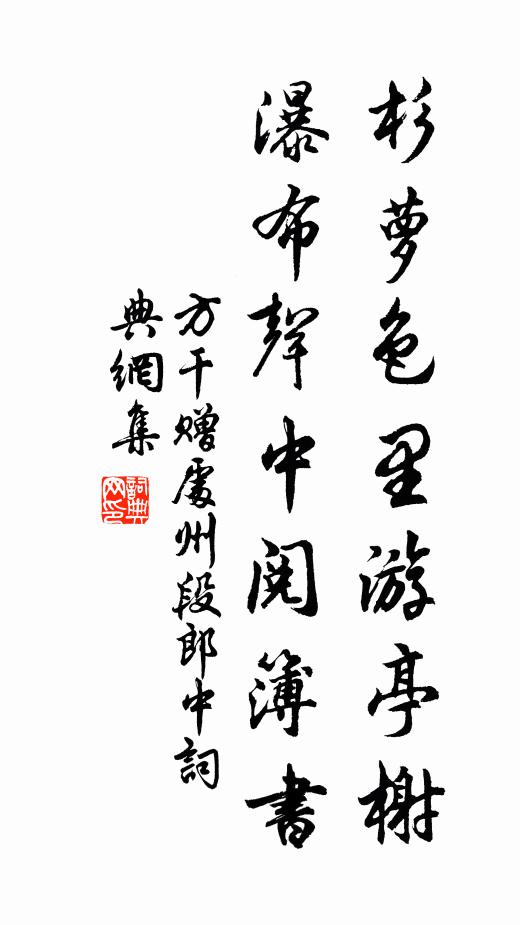 杉萝色里游亭榭
瀑布聲中閱簿書
方干贈處州段郎中詞
典網集
詞典
网印